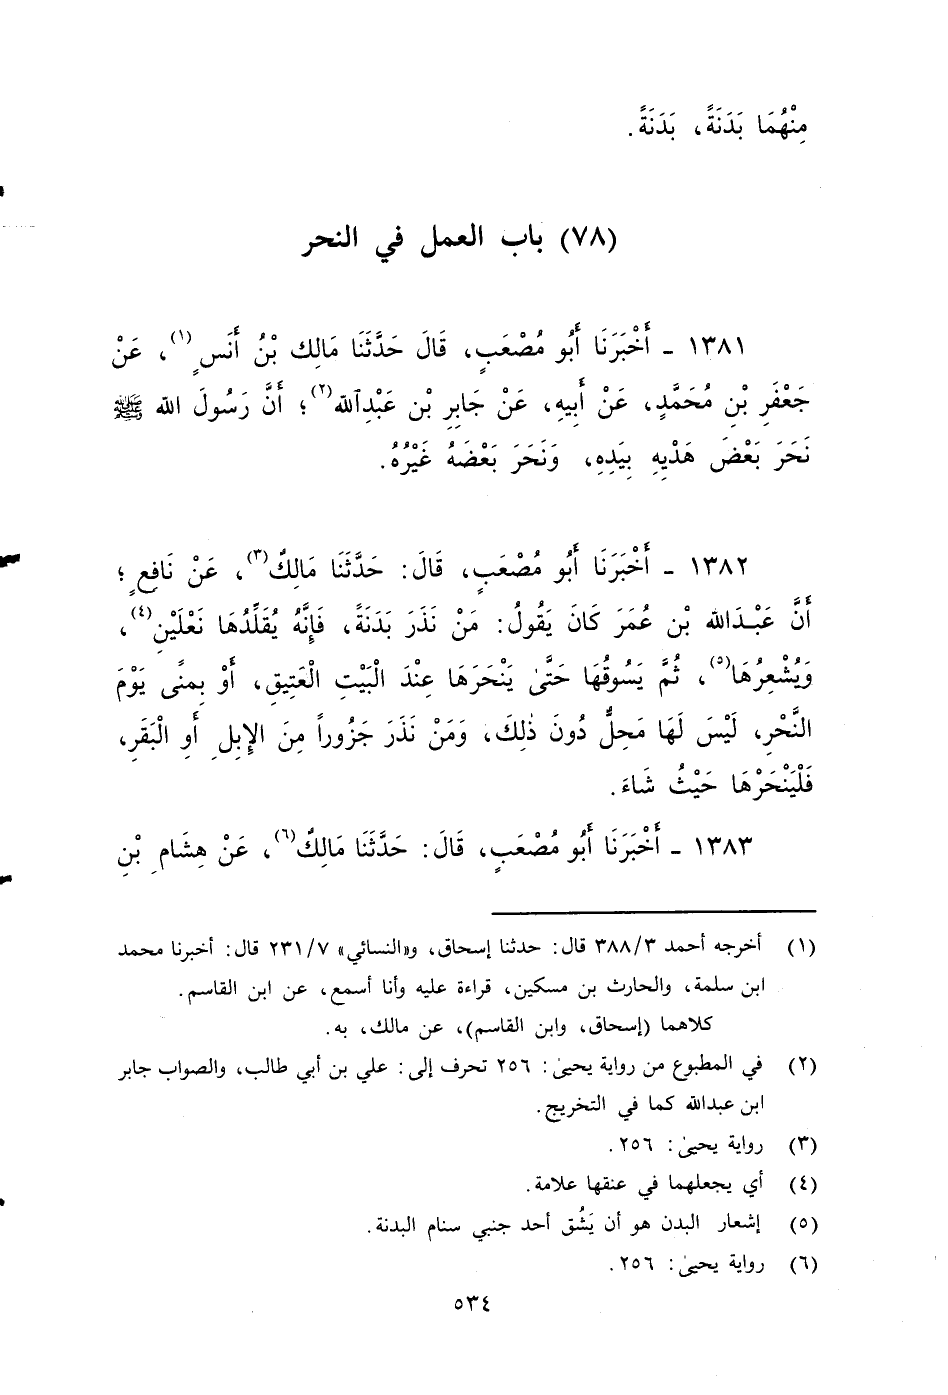 مِنْهُمَا بَدَنَةً، بَدَنَةً.
(٧٨) باب العمل في النحر
١٣٨١ ـ أَخْبَرَنَا أَبُو مُصْعَبٍ، قَالَ حَدَّثَنَا مَالِك بْنُ أَنَسٍ(١)، عَنْ
جَعْفَرِ بْنِ مُحَمَّدٍ، عَنْ أَبِيهِ، عَنْ جَابِرِ بْنِ عَبْدِاللّه(٢)؛ أَنَّ رَسُولَ اللّه ﷺ
نَحَرَ بَعْضَ هَدْيِهِ بِيَدِهِ، وَنَحَرَ بَعْضَهُ غَيْرُهُ.
١٣٨٢ ـ أَخْبَرَنَا أَبُو مُصْعَبٍ، قَالَ: حَدَّثَنَا مَالِكٌ(٣)، عَنْ نَافِعٍ؛
أَنَّ عَبْـدَاللّه بْنِ عُمَرَ كَانَ يَقُولُ: مَنْ نَذَرَ بَدَنَةً، فَإِنَّهُ يُقَلِّدُهَا نَعْلَيْنِ(٤)،
وَيُشْعِرُهَا(٥)، ثُمَّ يَسُوقُهَا حَتَّىٰ يَنْحَرَهَا عِنْدَ الْبَيْتِ الْعَتِيقِ، أَوْ بِمنًى يَوْمَ
النَّحْرِ، لَيْسَ لَهَا مَحِلٌّ دُونَ ذٰلِكَ، وَمَنْ نَذَرَ جَزُوراً مِنَ الإِبِلِ أَوِ الْبَقَرِ،
فَلْيَنْحَرْهَا حَيْثُ شَاءَ.
١٣٨٣ ـ أَخْبَرَنَا أَبُو مُصْعَبٍ، قَالَ: حَدَّثَنَا مَالِكٌ(٦)، عَنْ هِشَامِ بْنِ
(١) أخرجه أحمد ٣٨٨/٣ قال: حدثنا إسحاق، و«النسائي» ٢٣١/٧ قال: أخبرنا محمد
ابن سلمة، والحارث بن مسكين، قراءة عليه وأنا أسمع، عن ابن القاسم.
كلاهما (إسحاق، وابن القاسم)، عن مالك، به.
(٢) في المطبوع من رواية يحيىٰ: ٢٥٦ تحرف إلى: علي بن أبي طالب، والصواب جابر
ابن عبدالله كما في التخريج.
(٣) رواية يحيىٰ: ٢٥٦.
(٤) أي يجعلهما في عنقها علامة.
(٥) إشعار البدن هو أن يَشُق أحد جنبي سنام البدنة.
(٦) رواية يحيىٰ: ٢٥٦.
٥٣٤